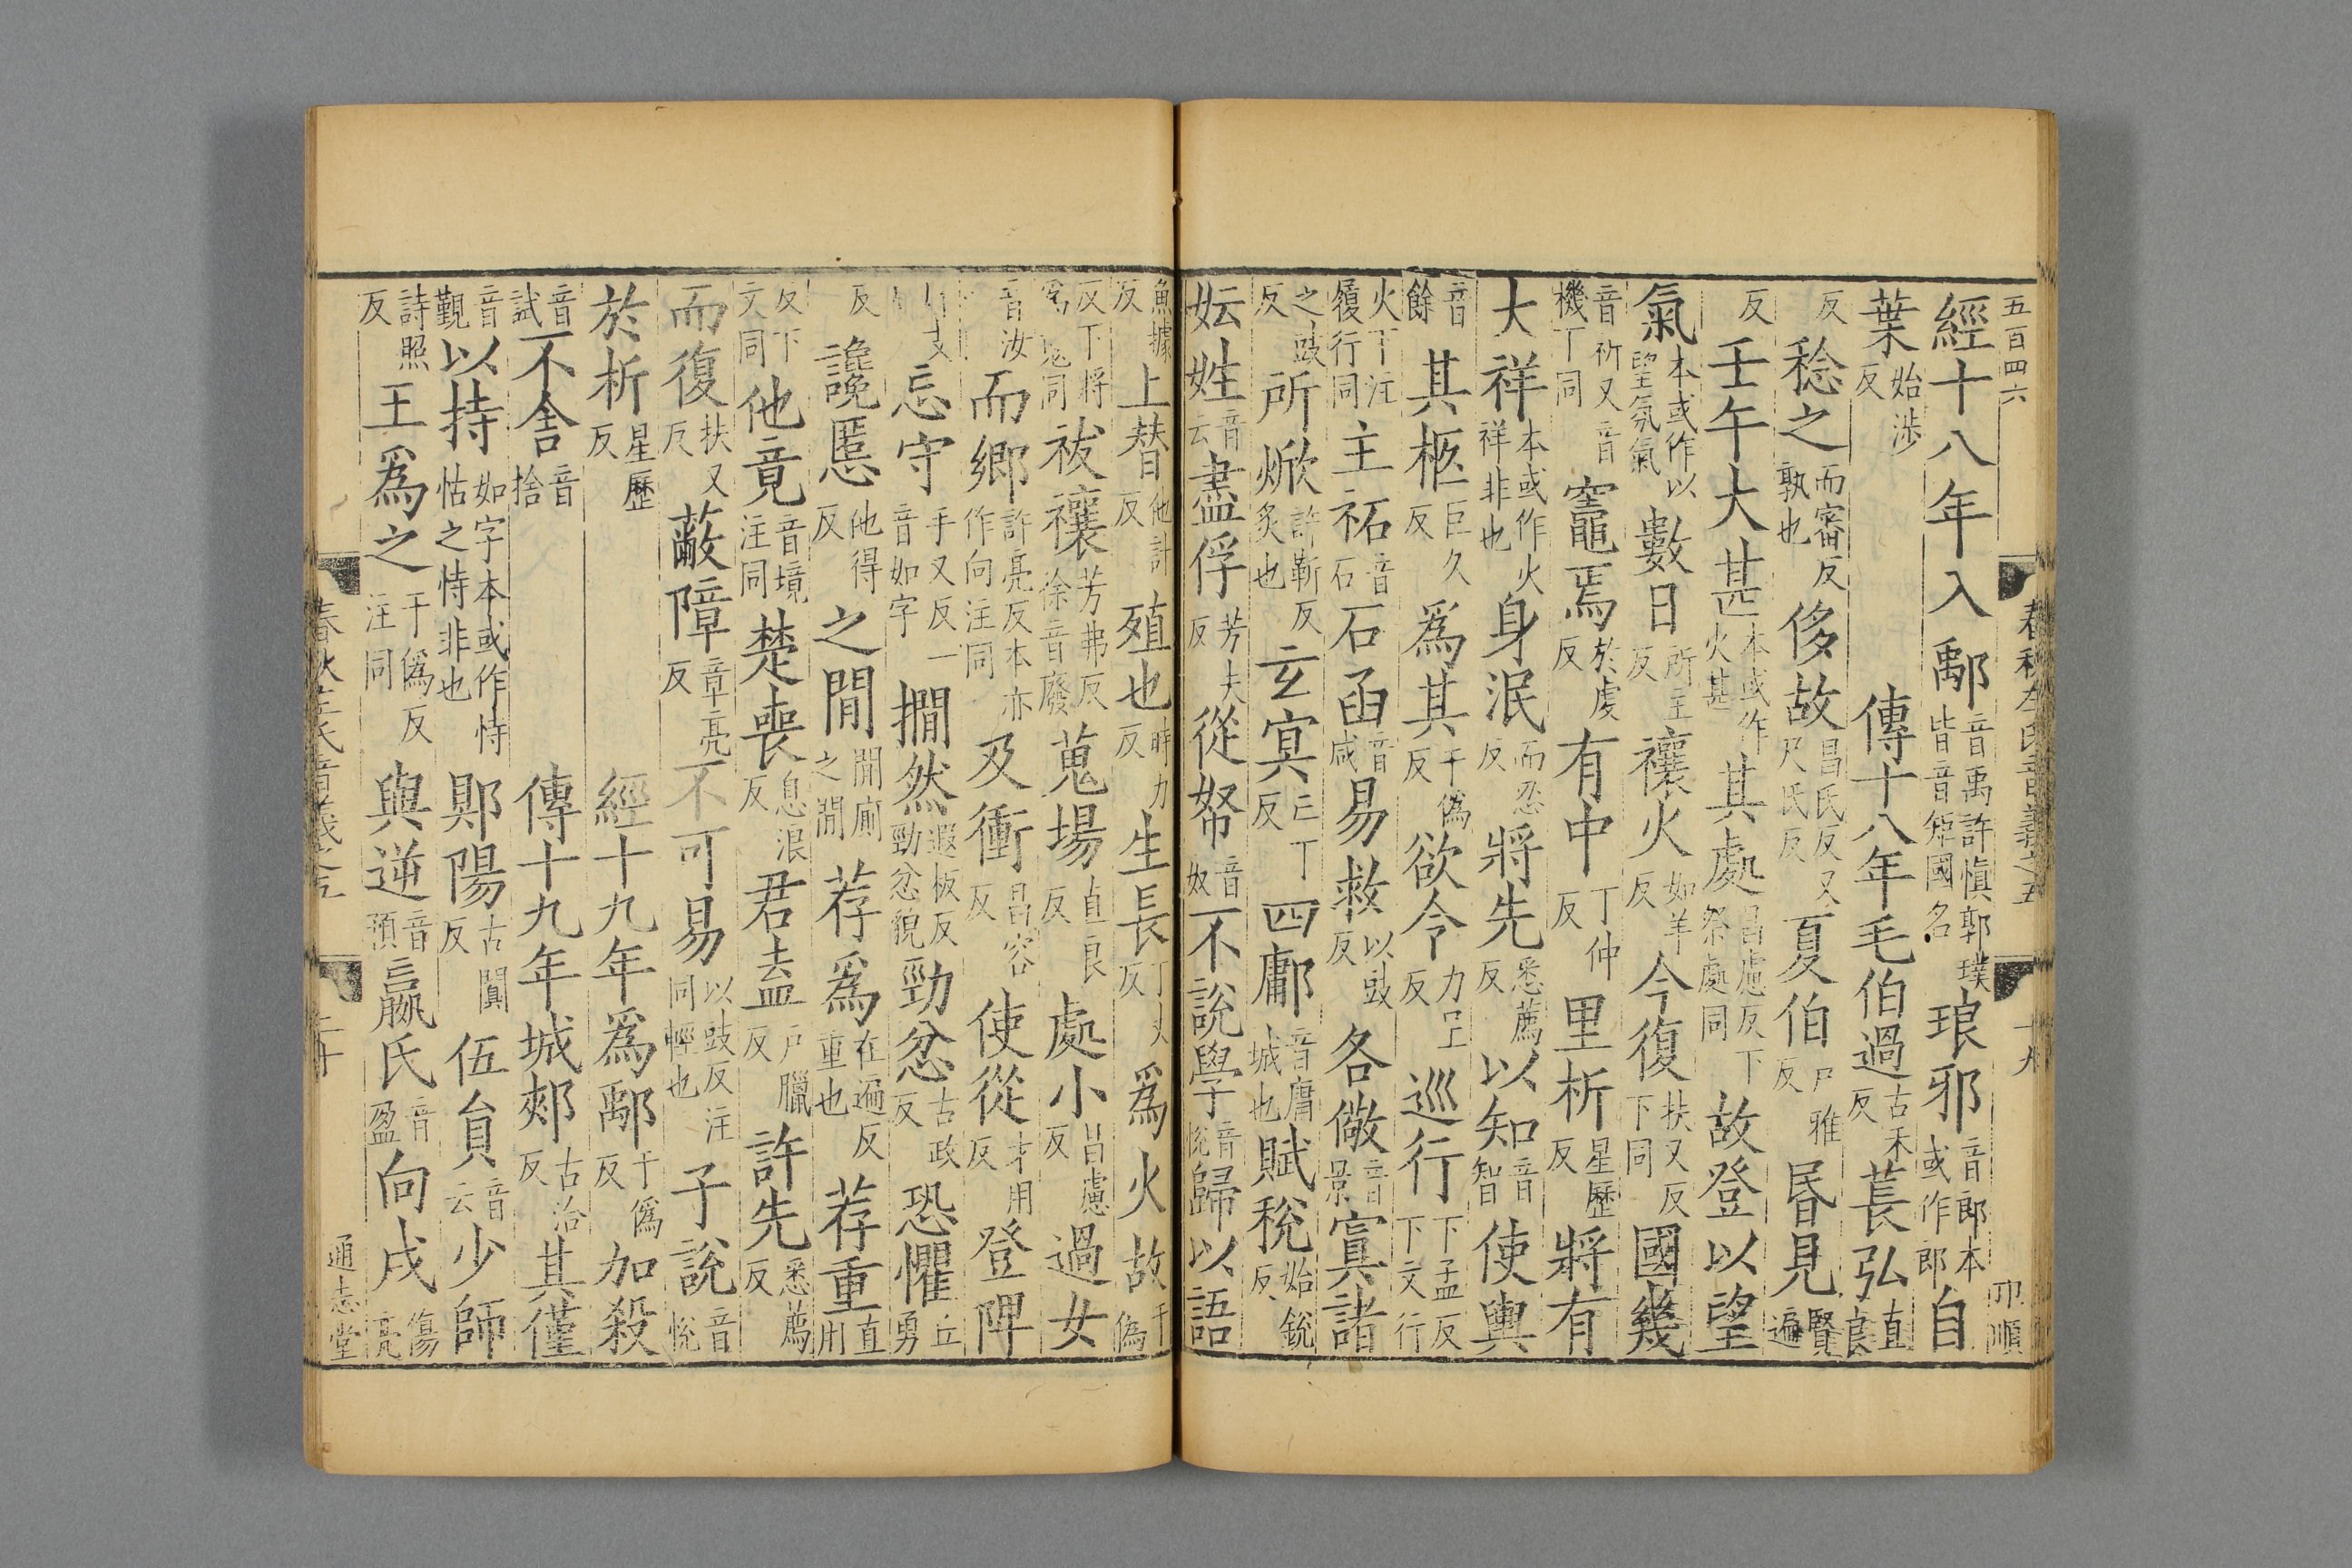 五百四六 春秋左氏音義之五 十九 卭順
經十八年入鄅音禹許愼郭璞皆音矩國名琅邪音郎本或作郎自
葉始涉反 傳十八年毛伯過古禾反萇弘直良
反稔之而審反孰也侈故昌氏反又尺氏反夏伯戸雅反昬見賢遍
反壬午大甚本或作火甚其處昌慮反下祭處同故登以望
氣本或作以望氛氣數日所主反禳火如羊反今復扶又反下同國幾
音祈又音機下同竈焉於虔反有中丁仲反里析星歷反將有
大祥本或作火祥非也身泯而忍反將先悉薦反以知音智使輿
音餘其柩巨久反爲其于僞反欲令力呈反巡行下孟反下文行
火下注履行同主祏音石石函音咸易救以豉反各儆音景寘諸
之豉反所焮許靳反炙也玄冥亡丁反四鄘音庸城也賦稅始銳反
妘姓音云盡俘芳夫反從帑音奴不說學音悅歸以語
魚據反上替他計反殖也時力反生長丁丈反爲火故于僞
反下將爲鬼同祓禳芳弗反徐音廢蒐場直良反處小昌慮反過女
音汝而鄉許亮反本亦作向注同及衝昌容反使從才用反登陴
忘守手又反一音如字撊然遐板反勁忿貌勁忿古政反恐懼丘勇
反讒慝他得反之間間廁之間荐爲在遍反重也荐重直用
反下文同他竟音境注同楚喪息浪反君盍戸臘反許先悉薦反
而復扶又反蔽障章亮反不可易以豉反注同輕也子說音悅
於析星歷反 經十九年爲鄅于僞反加殺
音試不舍音捨 傳十九年城郟古洽反其僅
音覲以持如字本或作恃怙之恃非也郹陽古闃反伍負音云少師
詩照反王爲之于僞反注同與逆音預嬴氏音盈向戌傷亮
春秋左氏音義之五 二十 通志堂